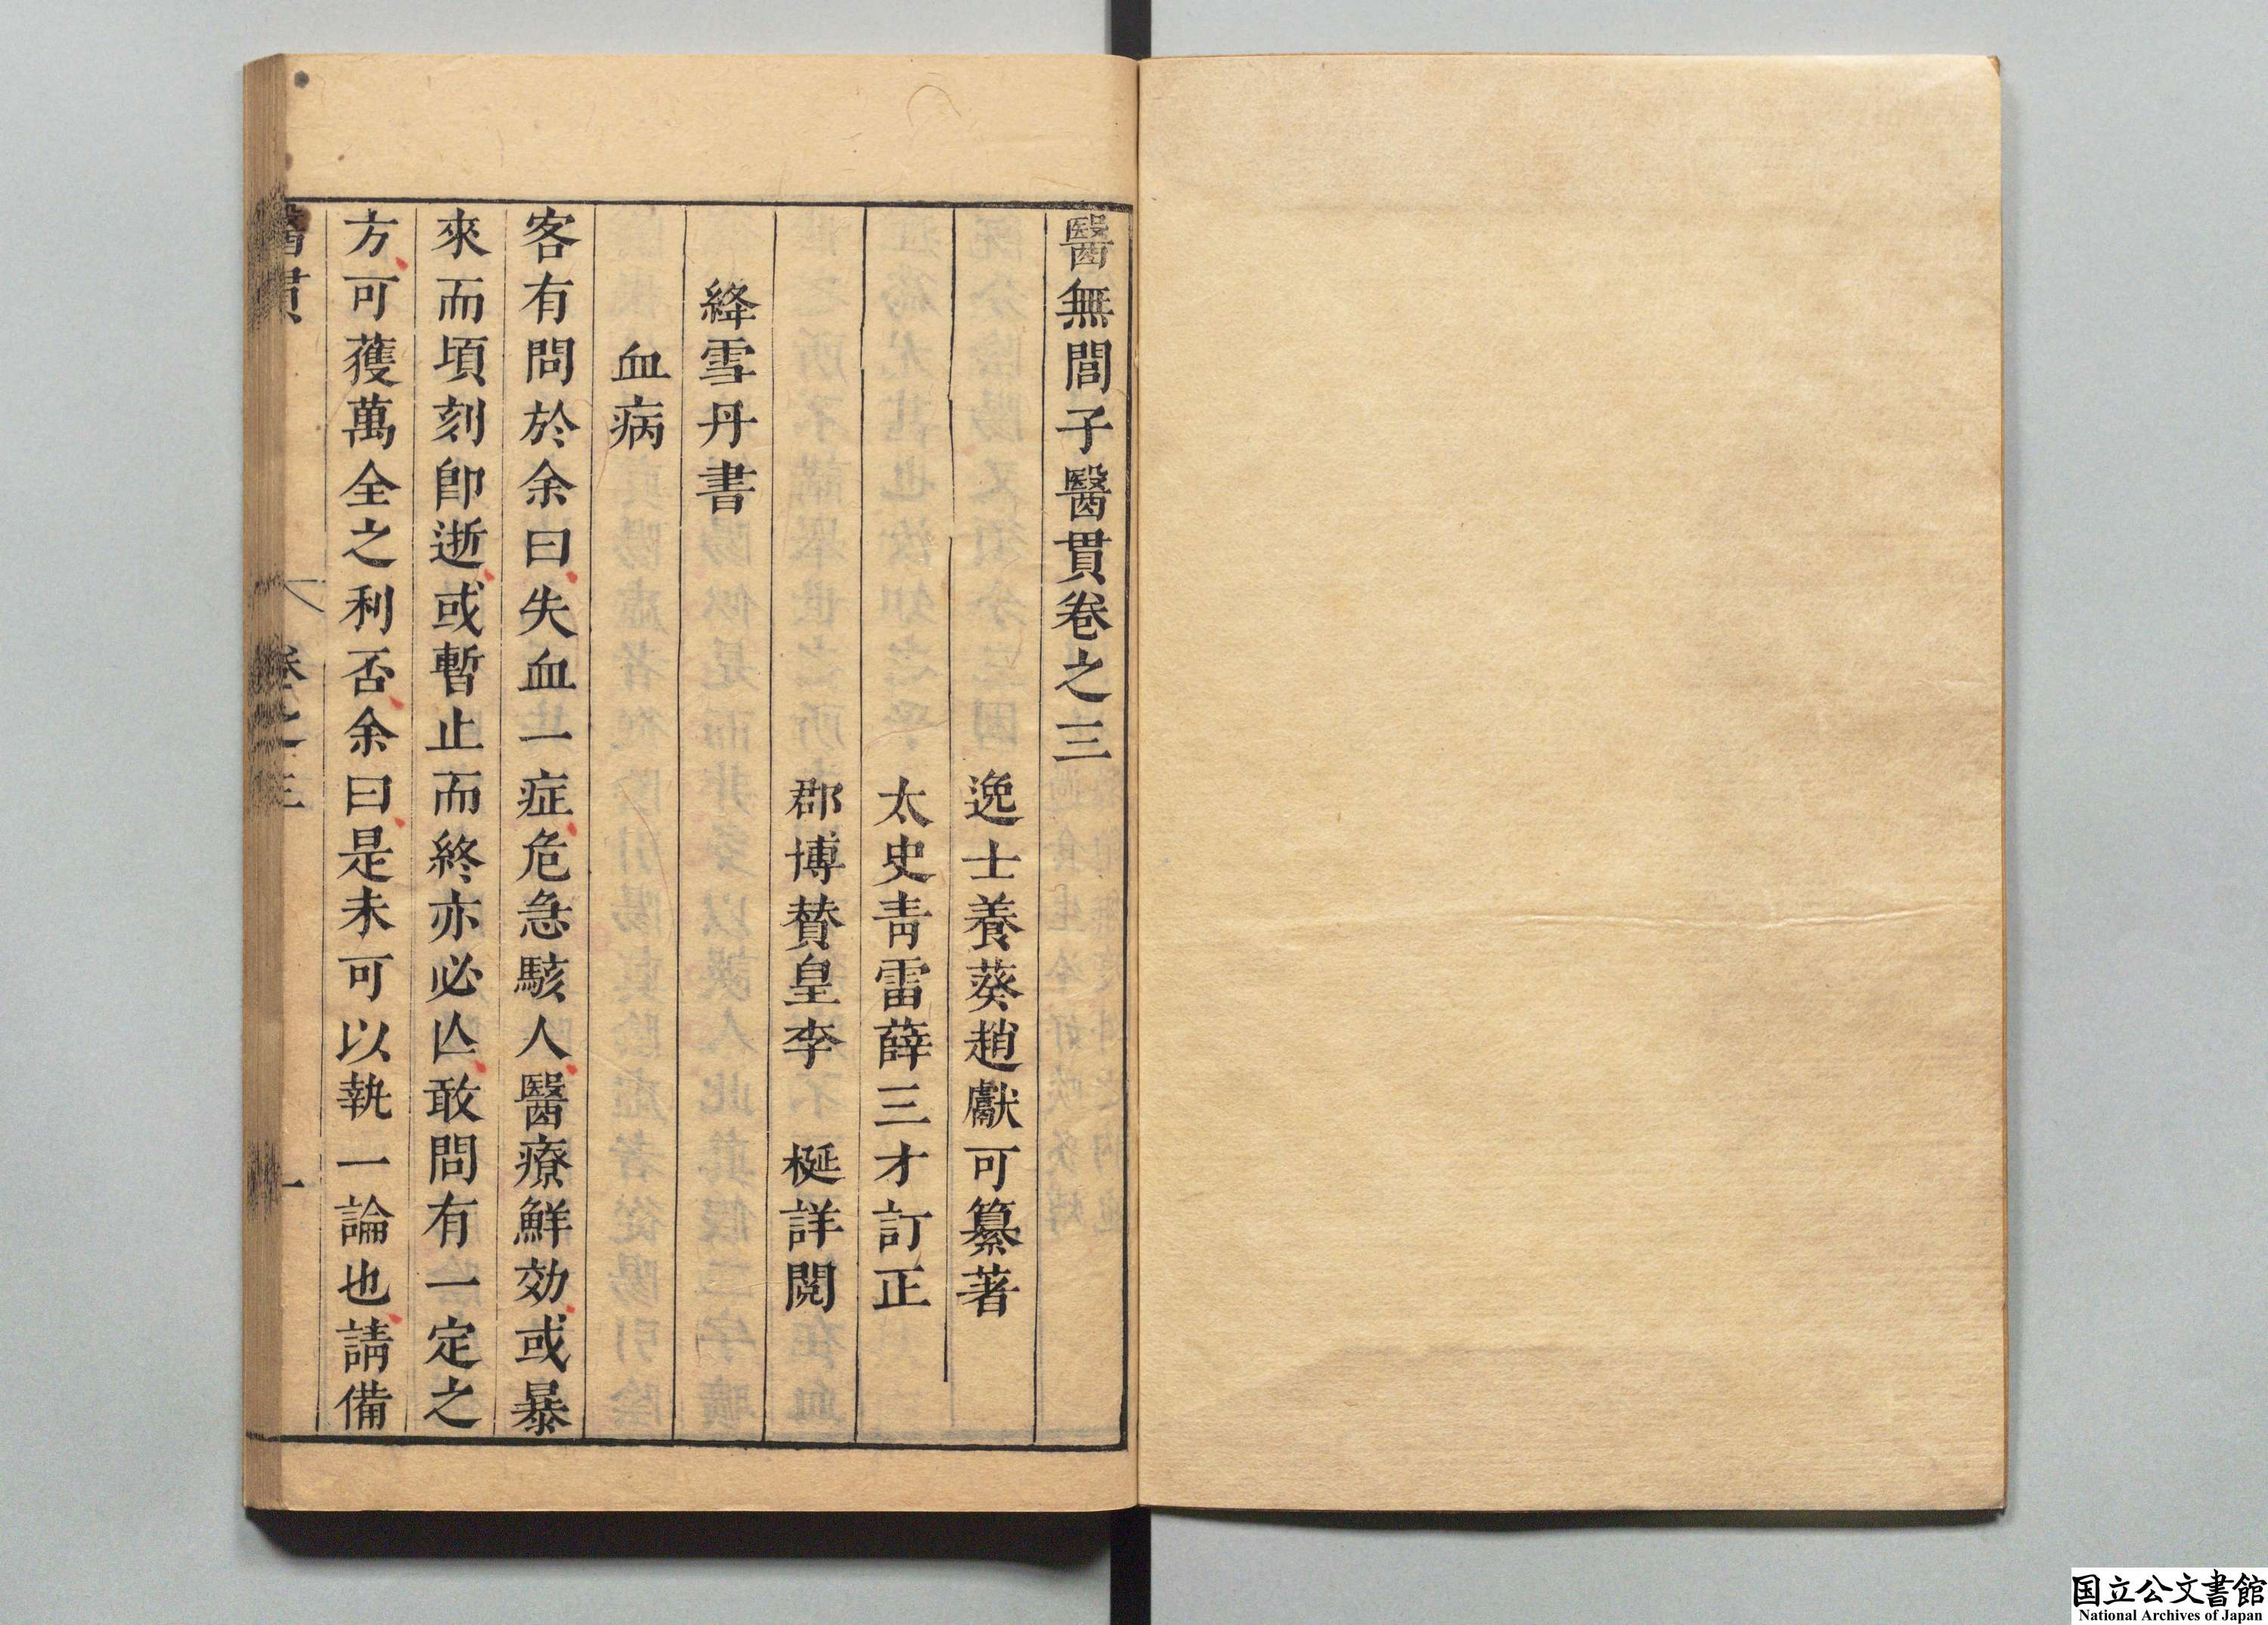 醫無閭子醫貫卷之三
逸士養葵趙獻可纂著
太史靑雷薛三才訂正
郡博賛皇李　梃詳閱
絳雪丹書
血病
客有問於余曰、失血一症、危急駭人、醫療鮮効、或暴
來而頃刻卽逝、或暫止而終亦必亾、敢問有一定之
方、可獲萬全之利否、余曰、是未可以執一論也、請備
醫貫　卷之三　一
国立公文書館
National Archives of Japan